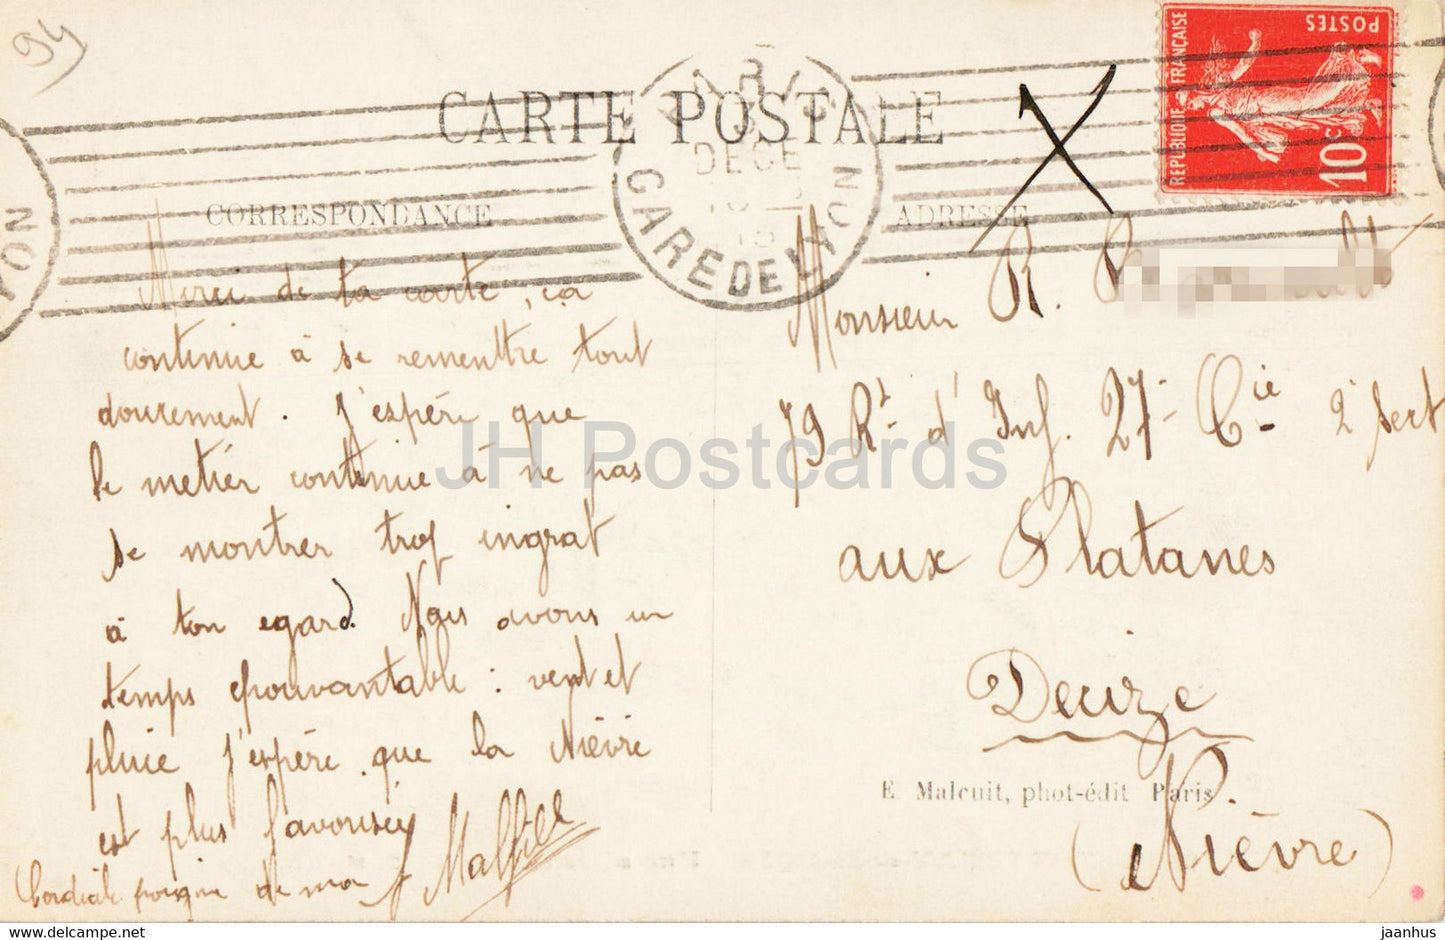 94
CARTE POSTALE
CORRESPONDANCE
ADRESSE
DECE
GARE DE LYON
YON
REPUBLIQUE FRANÇAISE
POSTES
10c
Merci de ta carte, ça
continue à se remettre tout
doucement. J'espère que
le métier continue à ne pas
se montrer trop ingrat
à ton egard. Nous avons un
temps épouvantable : vent et
pluie J'espère que la Nièvre
est plus favorisée
Cordiale poignée de ma
Monsieur R.
79 Rt d'Inf. 27e Cie 2e Sect
aux Platanes
Decize
(Nièvre)
E. Malcuit, phot-édit Paris.
JH Postcards
www.hippostcard.com/store/jaanhus
jaanhus